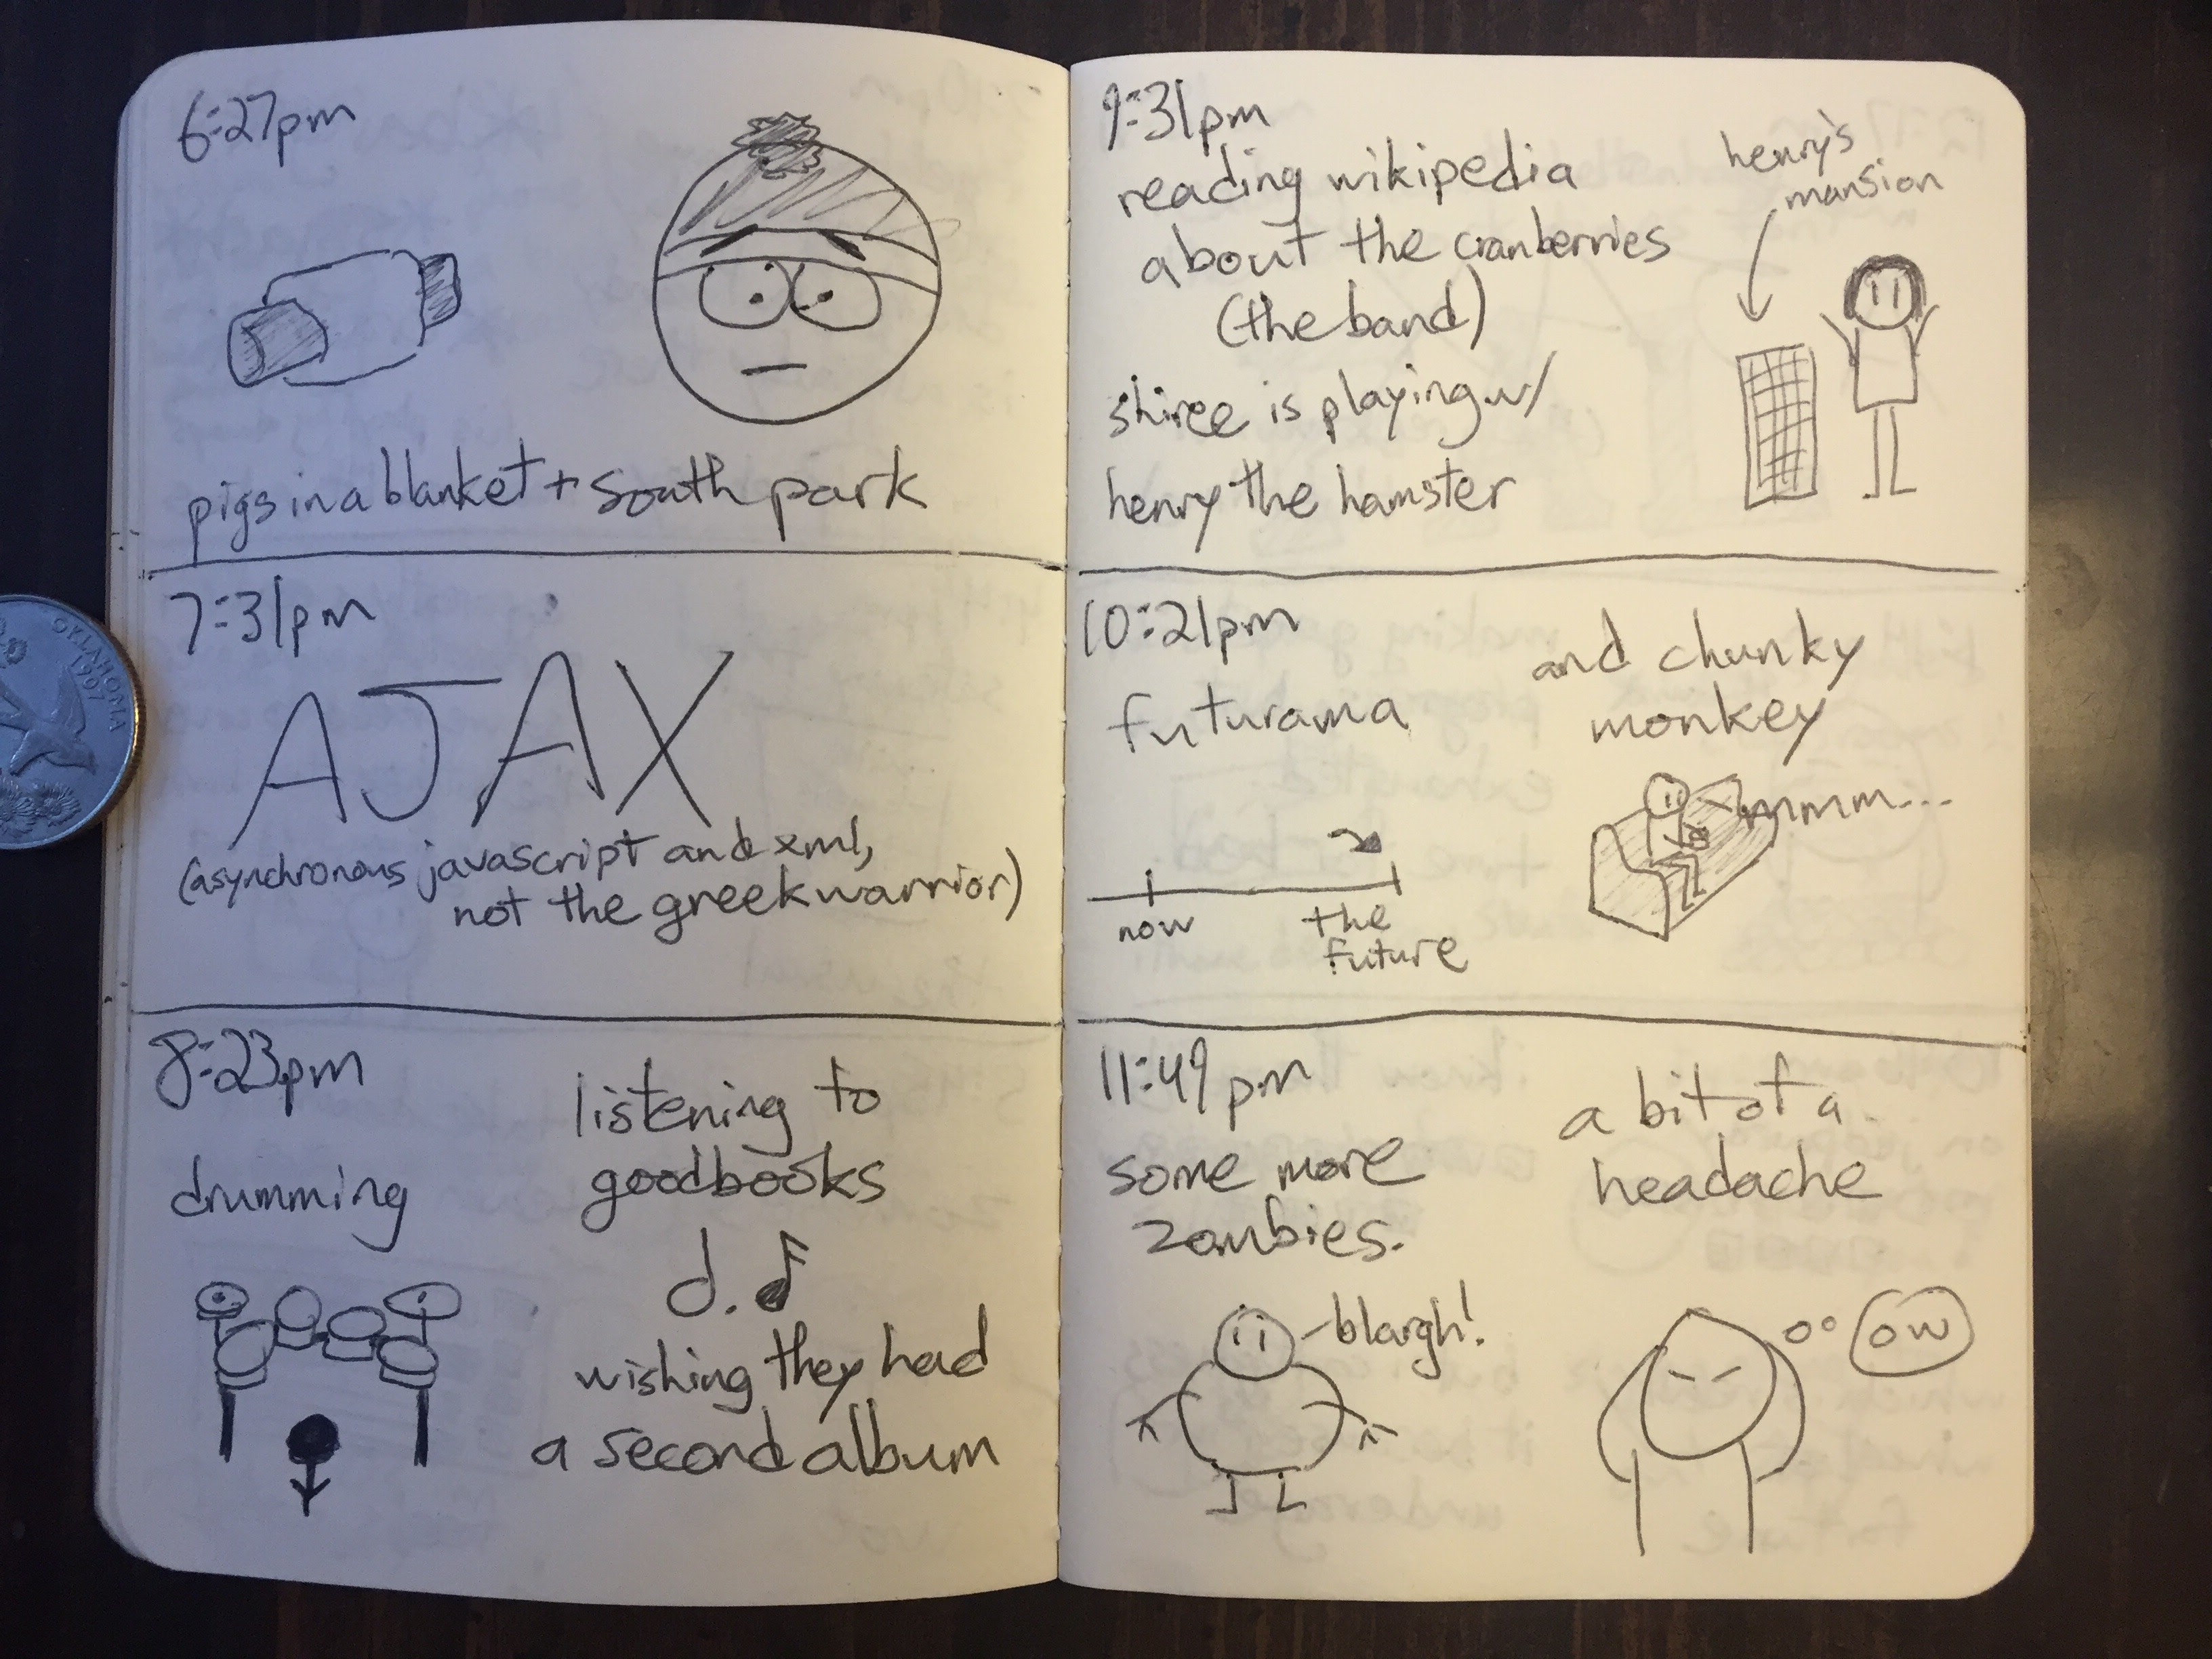 6:27pm
pigs in a blanket + south park
7:31pm
AJAX
(asynchronous javascript and xml,
not the greek warrior)
8:23pm
drumming
listening to
goodbooks
wishing they had
a second album
9:31pm
reading wikipedia
about the cranberries
(the band)
shiree is playing w/
henry the hamster
henry's
mansion
10:21pm
futurama
now
the
future
and chunky
monkey
mmm...
11:49pm
some more
zombies.
blargh!
a bit of a
headache
ow
OKLAHOMA
1907